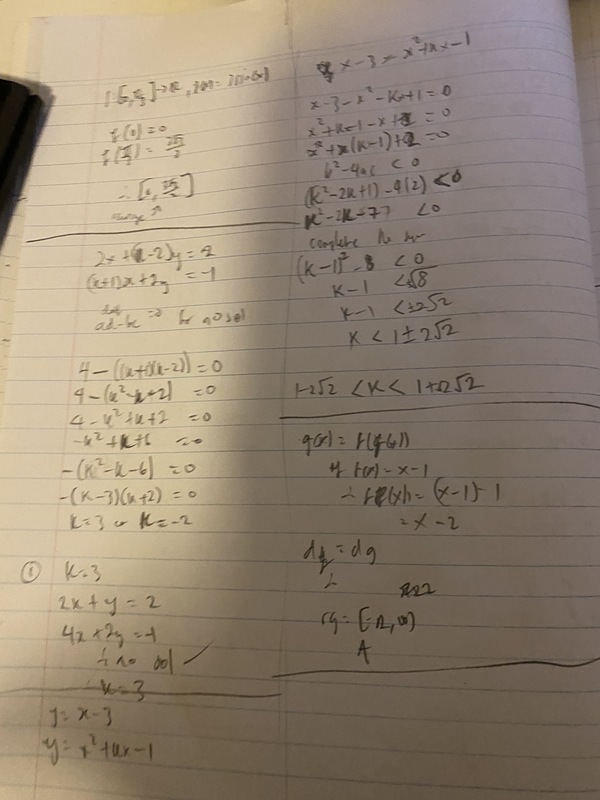 f(0) = 0
∴ [0,
range
2x + (k-2)y = 2
(k+1)x + 2y = -1
ad - bc = 0 for no sol
4 - ((k+1)(k-2)) = 0
4 - (k² - k + 2) = 0
4 - k² + k + 2 = 0
-k² + k + 6 = 0
-(k² - k - 6) = 0
-(k-3)(k+2) = 0
k = 3 or k = -2
① k = 3
2x + y = 2
4x + 2y = -1
∴ no sol ✓
∴ k = 3
y = x - 3
y = x² + kx - 1
x - 3 = x² + kx - 1
x - 3 - x² - kx + 1 = 0
b² - 4ac < 0
(k² - 2k + 1) - 4(2) < 0
k² - 2k - 7 < 0
complete the
(k-1)² - 8 < 0
k - 1 < ±√8
k - 1 < ±2√2
k < 1 ± 2√2
1-2√2 < k < 1+2√2
g(x) = f(f(x))
if f(x) = x - 1
∴ f(f(x)) = (x-1) - 1
= x - 2
= dg
∴
A